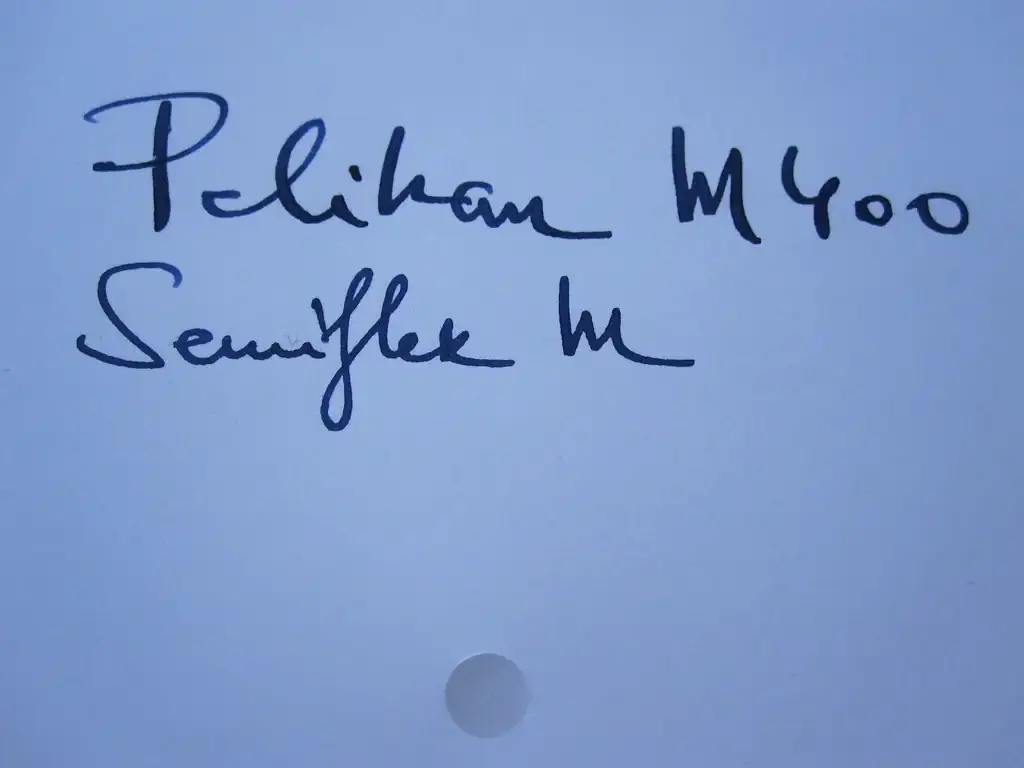 Pelikan M400
Semiflex M